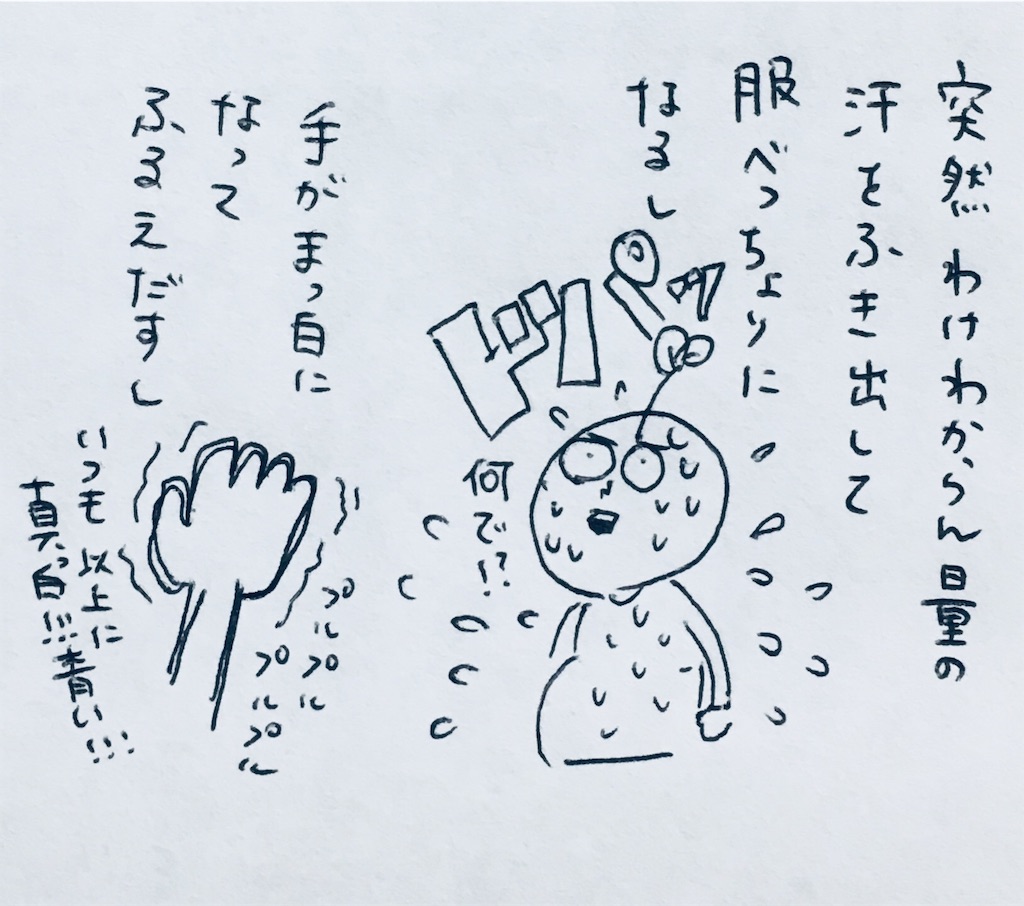 突然 わけわからん量の
汗をふき出して
服べっちょりに
なるし
ドバーッ
何で!?
手がまっ白に
なって
ふるえだすし
プルプルプルプル
いつも以上に
真っ白!!!青い!!!